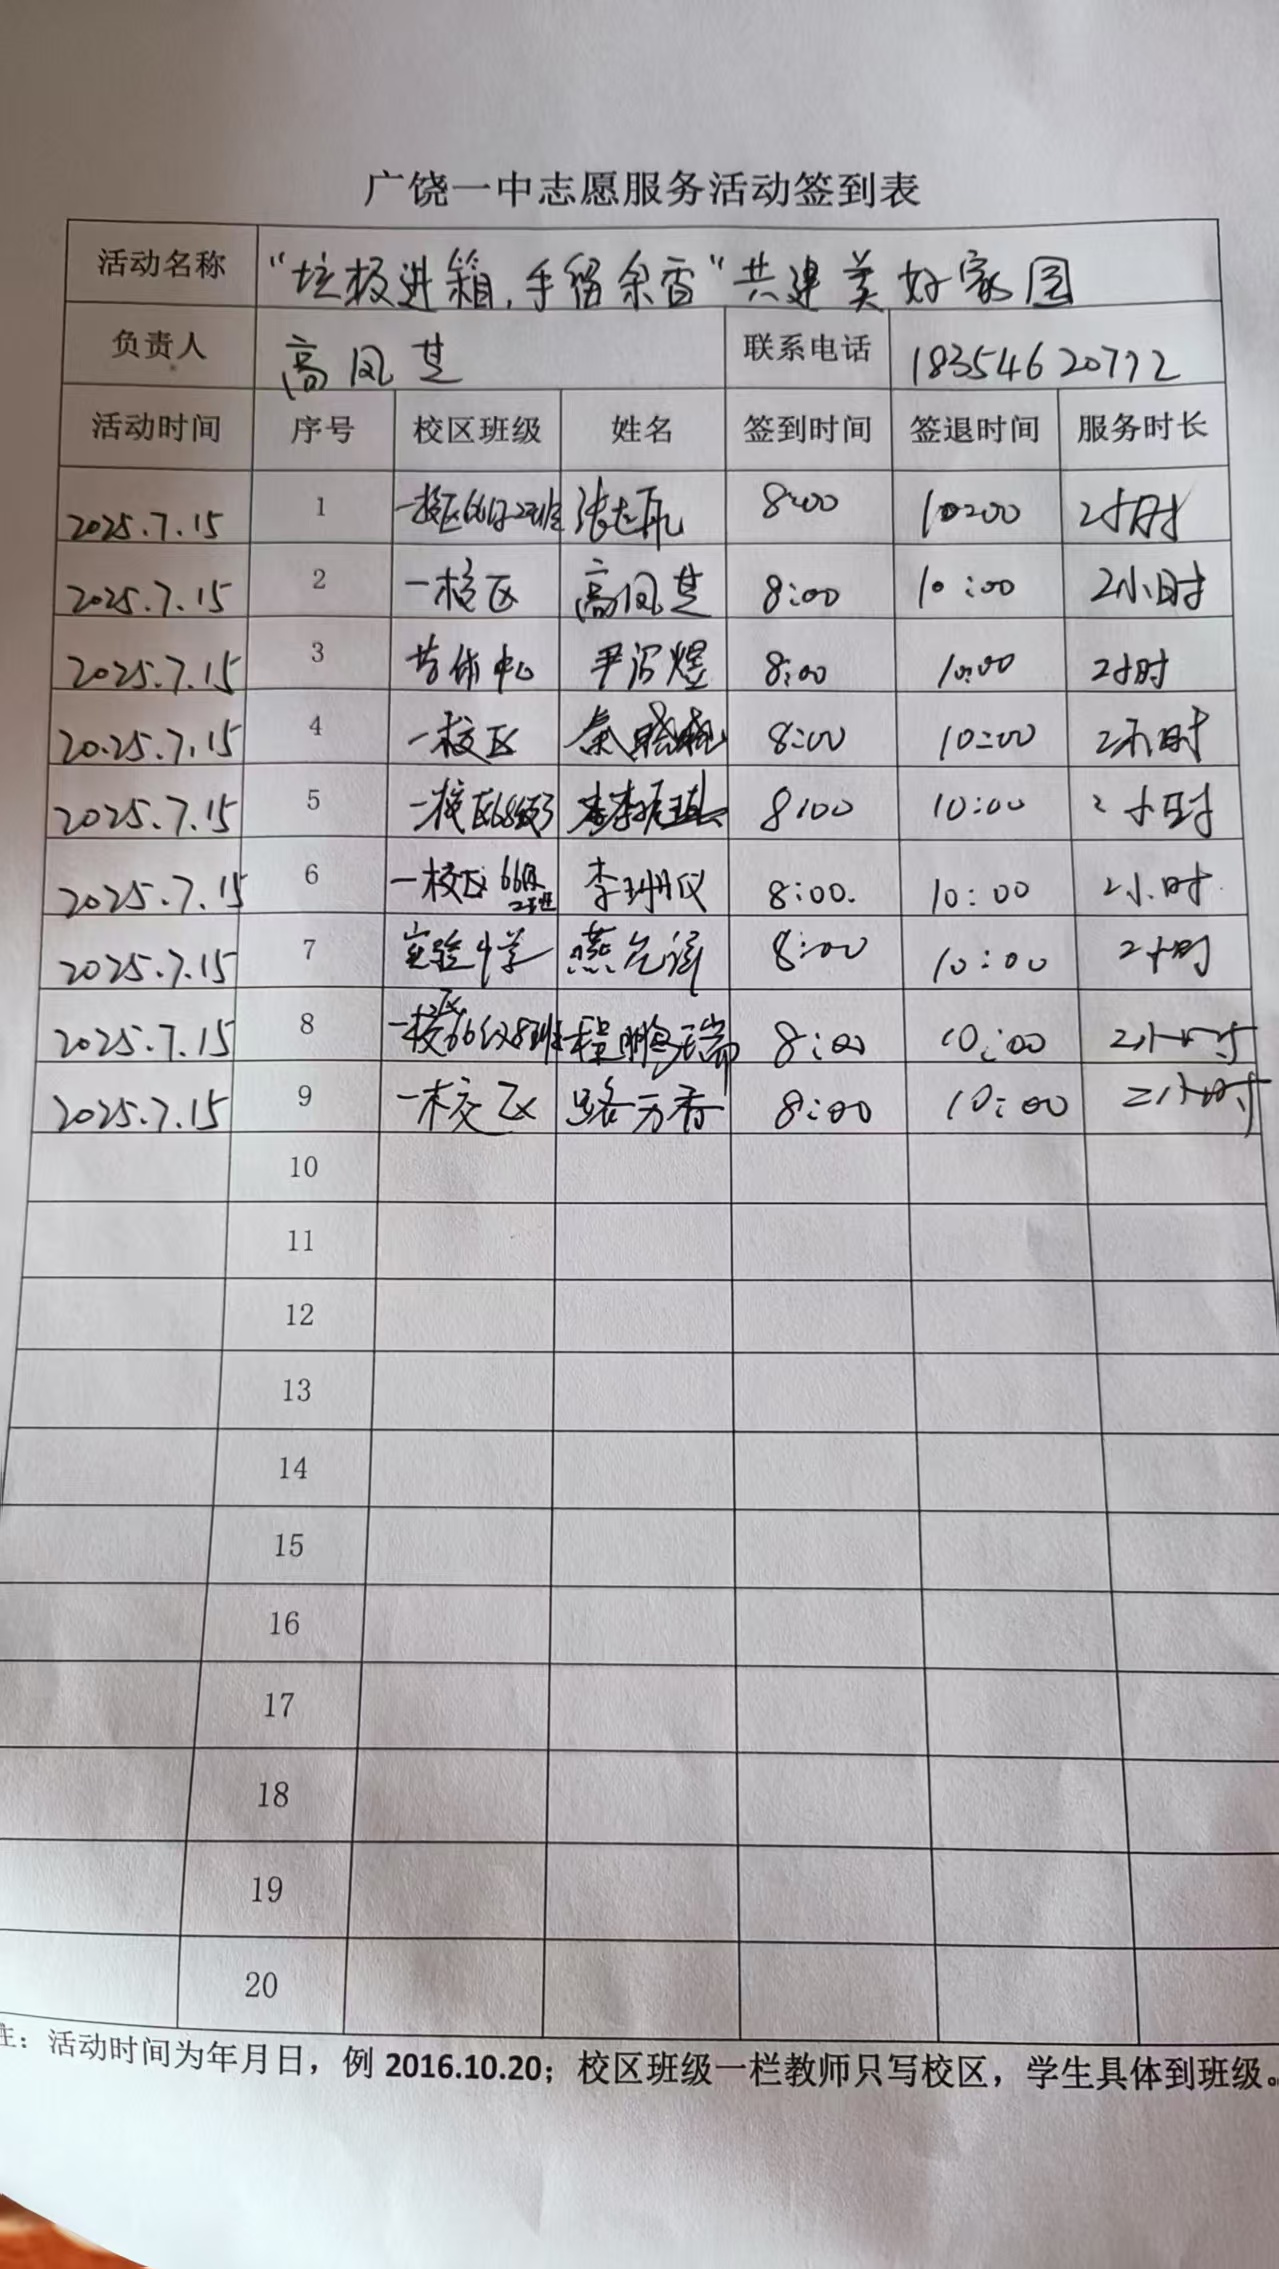 广饶一中志愿服务活动签到表
活动名称 “垃圾进箱,手留余香”共建美好家园
负责人 高凤芝 联系电话 18354620772
活动时间 序号 校区班级 姓名 签到时间 签退时间 服务时长
2025.7.15 1 一校区66级22班 张志 8:00 10:00 2小时
2025.7.15 2 一校区 高凤芝 8:00 10:00 2小时
2025.7.15 3 艺体中心 尹 煜 8:00 10:00 2小时
2025.7.15 4 一校区 秦晓 8:00 10:00 2小时
2025.7.15 5 一校区68级 李 8:00 10:00 2小时
2025.7.15 6 一校区 66级 李珊仪 8:00. 10:00 2小时
2025.7.15 7 实验中学 燕允诺 8:00 10:00 2小时
2025.7.15 8 一校区66级8班 程鹏瑞 8:00 10:00 2小时
2025.7.15 9 一校区 路万香 8:00 10:00 2小时
10
11
12
13
14
15
16
17
18
19
20
注：活动时间为年月日，例 2016.10.20；校区班级一栏教师只写校区，学生具体到班级。